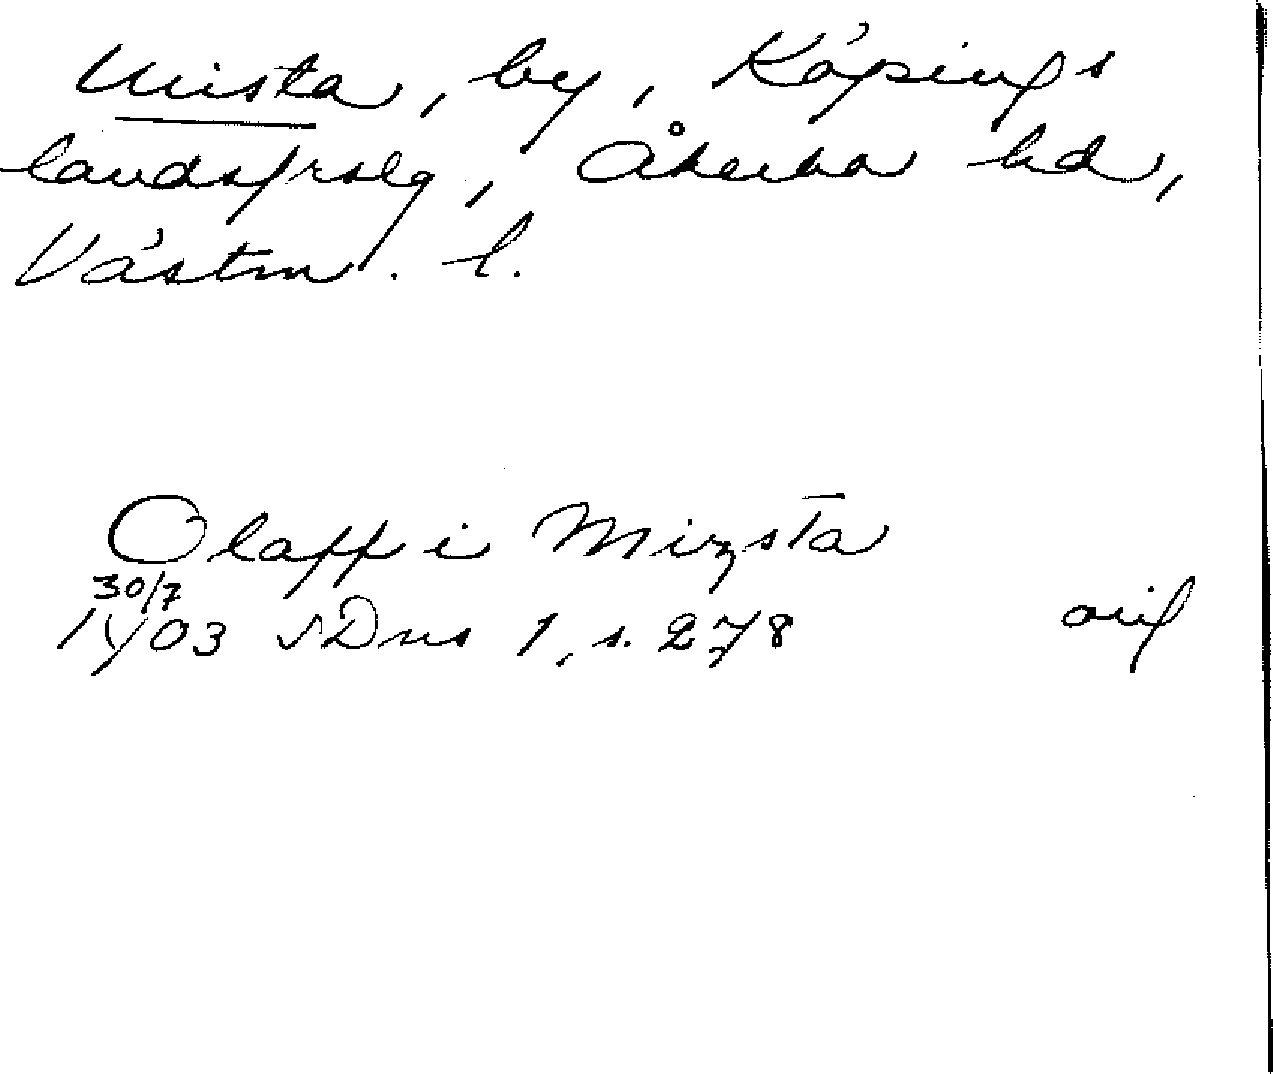 Mista, by, Köpings
landsfrslg, Åkerbo hd,
Västm. l.
Olaff i Mizsta
30/7
1403 SDns 1, s. 278 orig